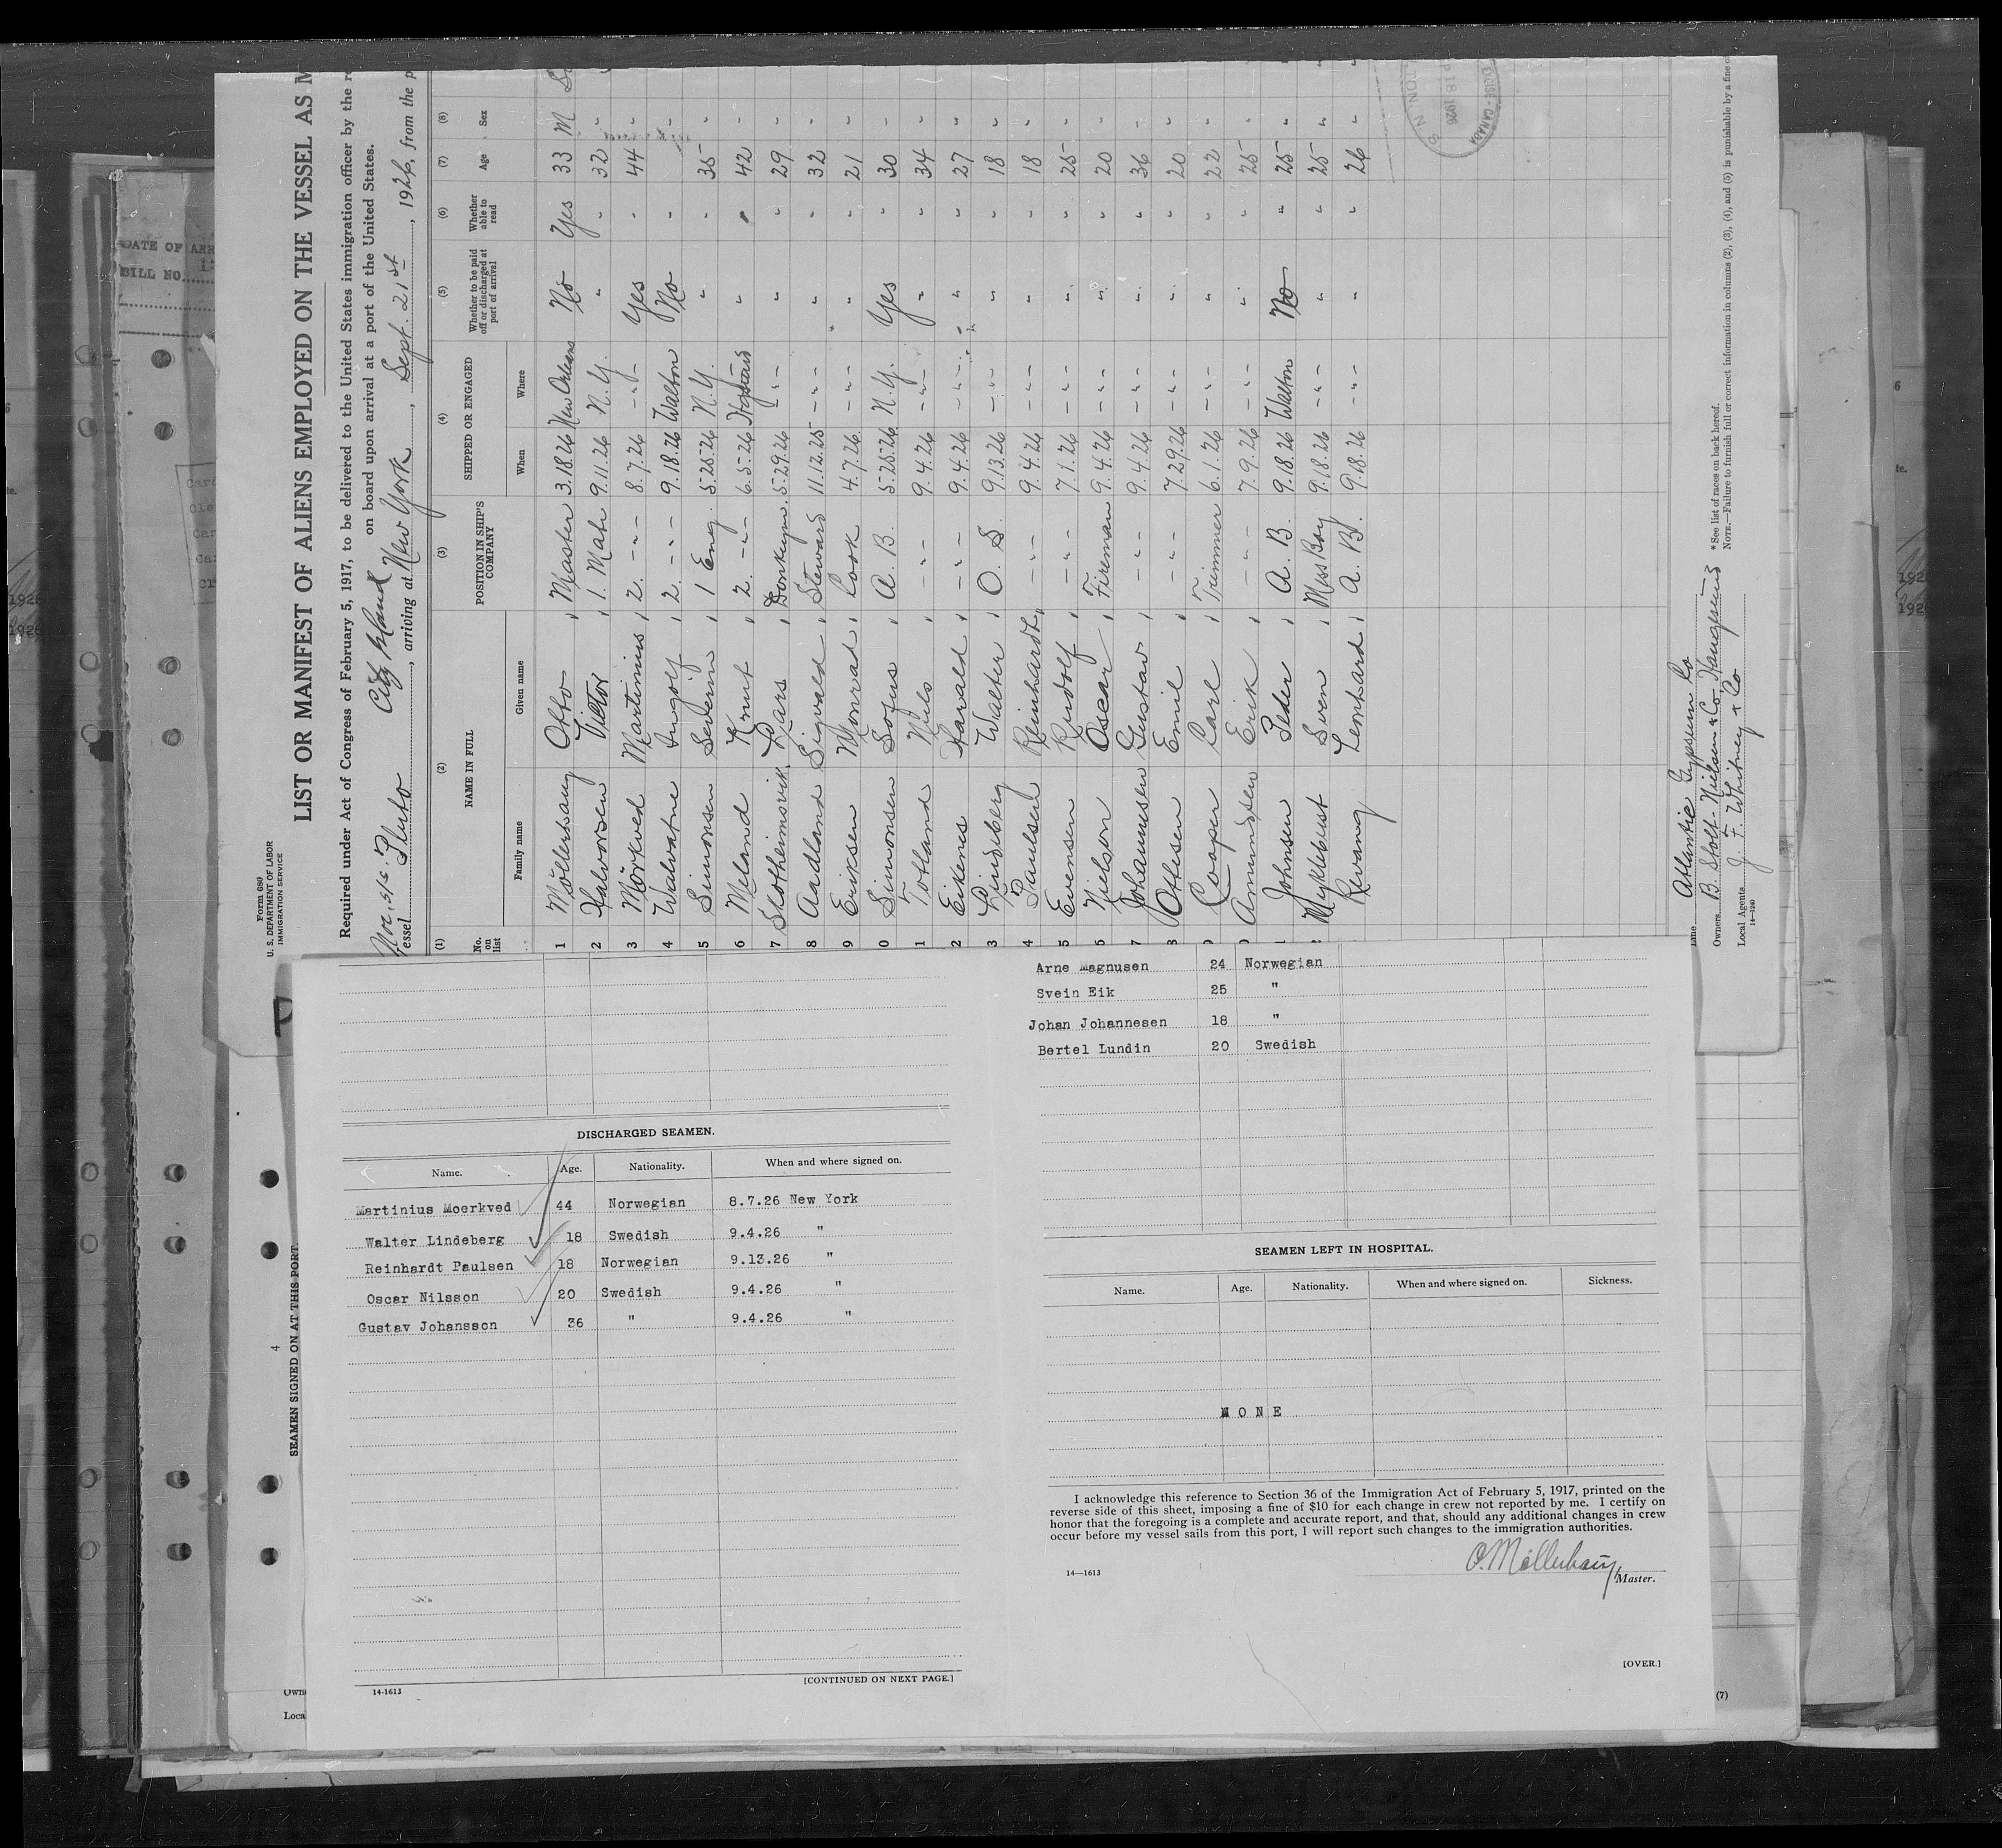 Form 680
U. S. DEPARTMENT OF LABOR
IMMIGRATION SERVICE
LIST OR MANIFEST OF ALIENS EMPLOYED ON THE VESSEL AS M
Required under Act of Congress of February 5, 1917, to be delivered to the United States immigration officer by the r
on board upon arrival at a port of the United States.
City Island
Nor. s/s. Pluto, arriving at New York, Sept. 21st, 1926, from the p
(1) (2) (3) (4) (5) (6) (7) (8)
No. on list NAME IN FULL POSITION IN SHIP'S COMPANY SHIPPED OR ENGAGED Whether to be paid off or discharged at port of arrival Whether able to read Age Sex
Family name Given name When Where
1 Möllerhaug Otto Master 3.18.26 New Orleans No Yes 33 M
2 Halvorsen Victor 1. Mate 9.11.26 N.Y. " " 32 "
3 Mörkved Martinius 2. -"- 8.7.26 -"- Yes " 44 "
4 Walvatne Ingolf 2. -"- 9.18.26 Walton No " "
5 Simonsen Severin 1 Eng. 5.25.26 N.Y. " " 35 "
6 Meland Knut 2. -"- 6.5.26 " " 42 "
7 Slotheimsvik Lars Donkeym. 5.29.26 -"- " " 29 "
8 Aadland Sigvald Steward 11.12.25 -"- " " 32 "
9 Eriksen Monrad Cook 4.7.26 -"- " " 21 "
0 Simonsen Sofus A. B. 5.25.26 N.Y. Yes " 30 "
1 Totland Nils -"- 9.4.26 -"- " " 34 "
2 Eikenes Harald -"- 9.4.26 -"- " " 27 "
3 Lindeberg Walter O. S. 9.13.26 -"- " " 18 "
4 Paulsen Reinhardt -"- 9.4.26 -"- " " 18 "
5 Evensen Rudolf -"- 7.1.26 -"- " " 25 "
6 Nielson Oscar Fireman 9.4.26 -"- " " 20 "
7 Johannesen Gustav -"- 9.4.26 -"- " " 36 "
8 Ottesen Emil -"- 7.29.26 -"- " " 20 "
Cooper Carl Trimmer 6.1.26 -"- " " 22 "
Amundsen Erik -"- 7.9.26 -"- " " 25 "
Johnsen Peder A. B. 9.18.26 Walton No " 25 "
Myklebust Sven Mess Boy 9.18.26 -"- " " 25 "
Revang Leonhard A. B. 9.18.26 -"- " " 26 "
Atlantic Gypsum Co
Owners B. Stolt-Nielsen & Co. Haugesund
Local Agents J. F. Whitney & Co
14—1240
* See list of races on back hereof.
NOTE.—Failure to furnish full or correct information in columns (2), (3), (4), and (5) is punishable by a fine o
DATE OF ARR
BILL NO.
4
SEAMEN SIGNED ON AT THIS PORT.
DISCHARGED SEAMEN.
Name. Age. Nationality. When and where signed on.
Martinius Moerkved 44 Norwegian 8.7.26 New York
Walter Lindeberg 18 Swedish 9.4.26 "
Reinhardt Paulsen 18 Norwegian 9.13.26 "
Oscar Nilsson 20 Swedish 9.4.26 "
Gustav Johansson 36 " 9.4.26 "
14-1613
[CONTINUED ON NEXT PAGE.]
Arne Magnusen 24 Norwegian
Svein Eik 25 "
Johan Johannesen 18 "
Bertel Lundin 20 Swedish
SEAMEN LEFT IN HOSPITAL.
Name. Age. Nationality. When and where signed on. Sickness.
NONE
I acknowledge this reference to Section 36 of the Immigration Act of February 5, 1917, printed on the
reverse side of this sheet, imposing a fine of $10 for each change in crew not reported by me. I certify on
honor that the foregoing is a complete and accurate report, and that, should any additional changes in crew
occur before my vessel sails from this port, I will report such changes to the immigration authorities.
O. Möllerhaug
Master.
14—1613
[OVER.]
(7)